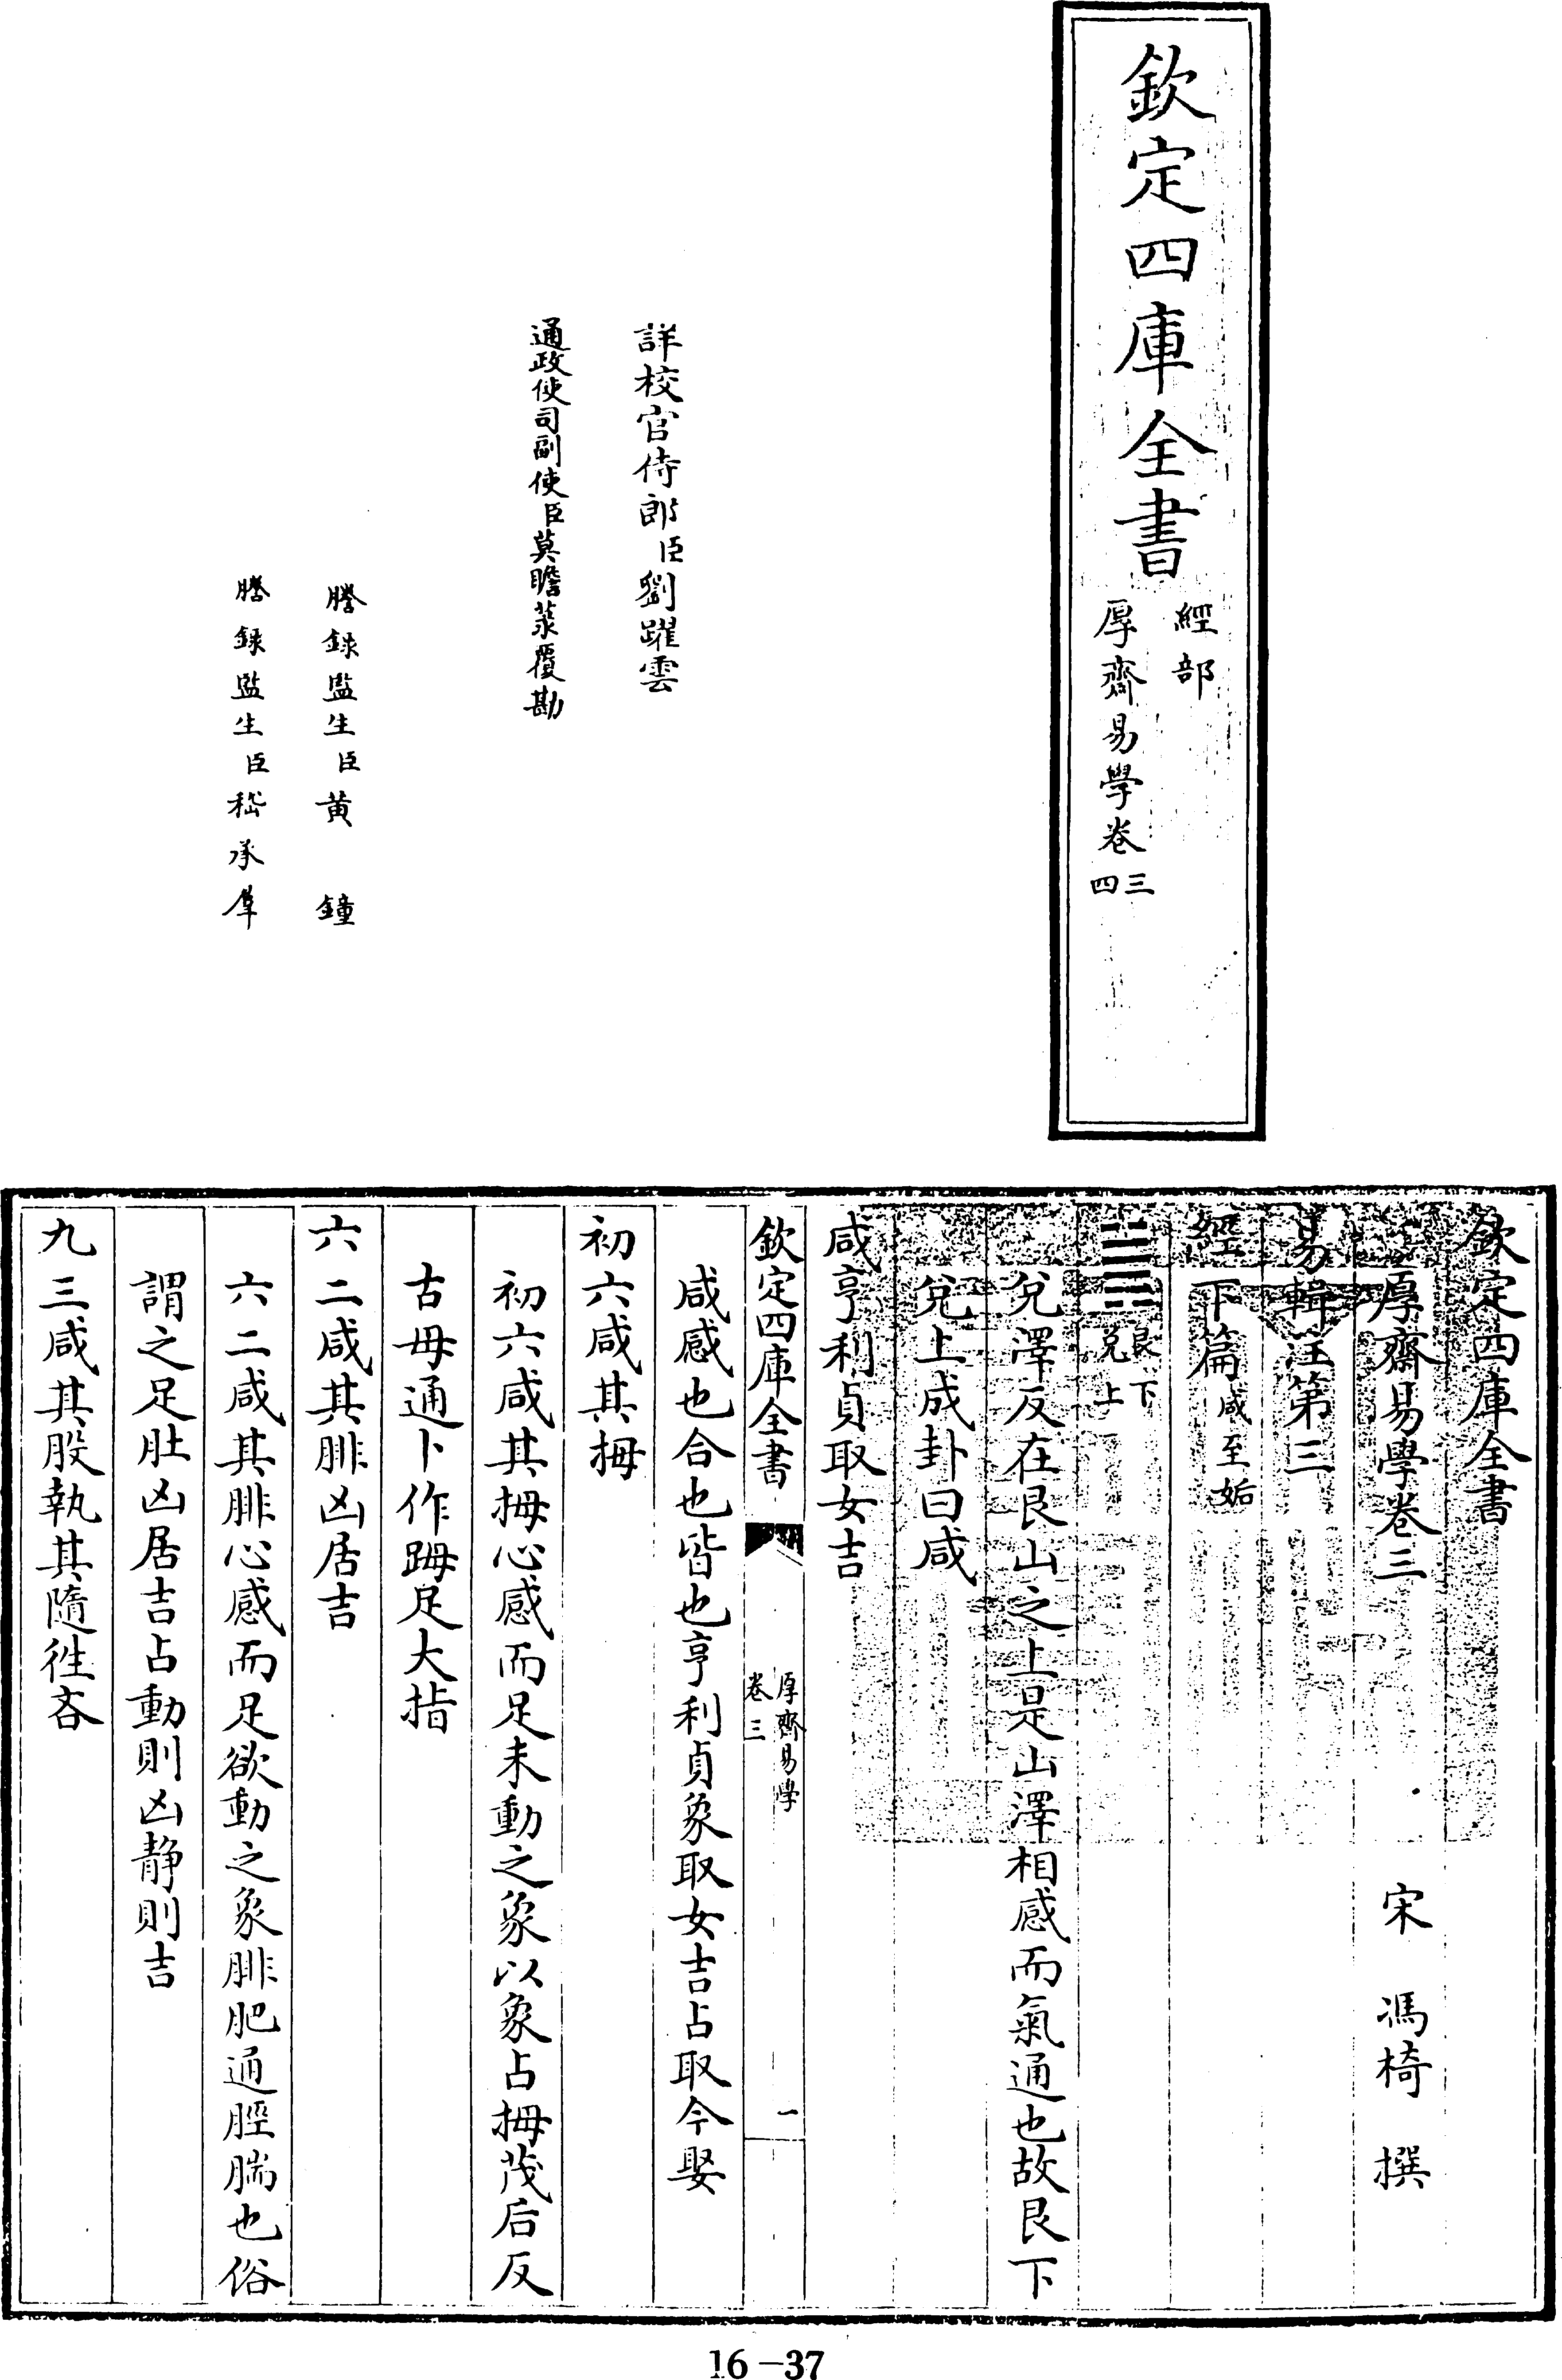 欽定四庫全書
經部
厚齋易學卷三四
詳校官侍郎臣劉躍雲
通政使司副使臣莫瞻菉覆勘
謄録監生臣黄鐘
謄録監生臣嵇承羣
欽定四庫全書
厚齋易學卷三
宋 馮椅 撰
易輯注第三
經下篇咸至姤
䷞艮下兌上
兌澤反在艮山之上是山澤相感而氣通也故艮下
兌上成卦曰咸
咸亨利貞取女吉
欽定四庫全書
厚齋易學
卷三
一
咸感也合也皆也亨利貞象取女吉占取今娶
初六咸其拇
初六咸其拇心感而足未動之象以象占拇茂后反
古毋通卜作䟦足大指
六二咸其腓凶居吉
六二咸其腓心感而足欲動之象腓肥通脛腨也俗
謂之足肚凶居吉占動則凶静則吉
九三咸其股執其隨徃吝
16-37